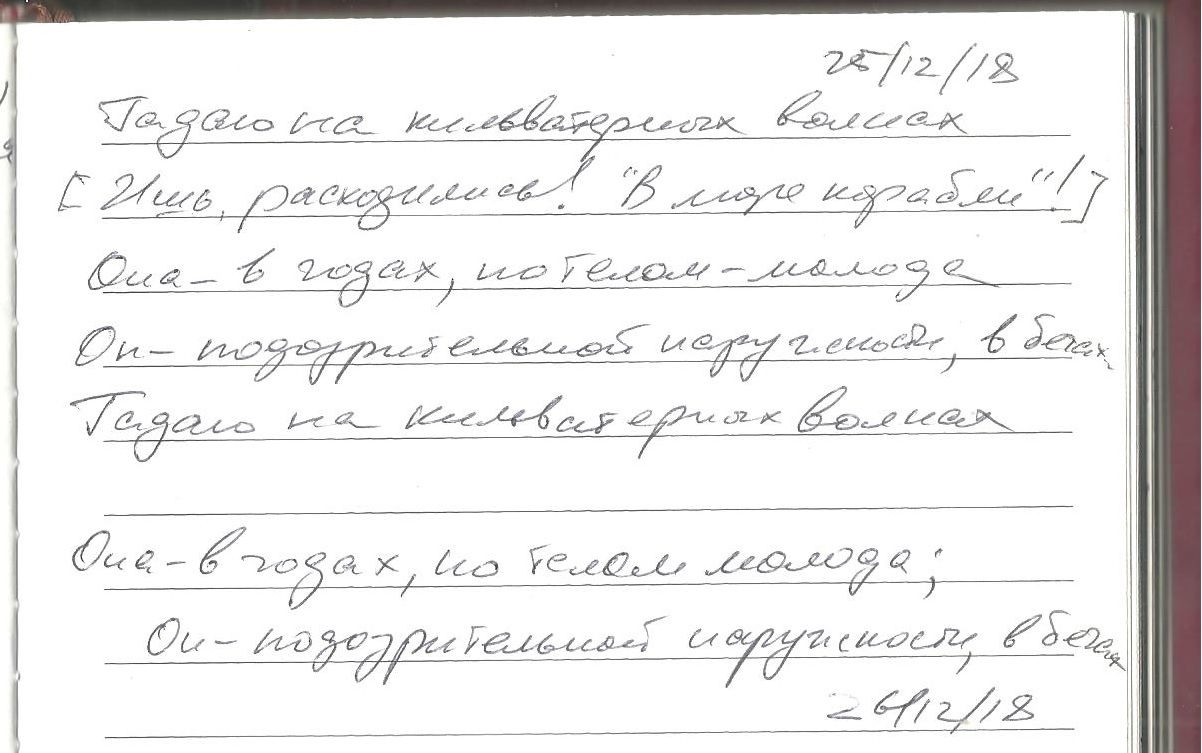 25/12/18
Гадаю на кильватерных волнах
[Ишь, расходились! "В море корабли"!]
Она – в годах, но телом – молода
Он – подозрительной наружности, в бегах
Гадаю на кильватерных волнах
Она – в годах, но телом молода;
Он – подозрительной наружности, в бегах
26/12/18